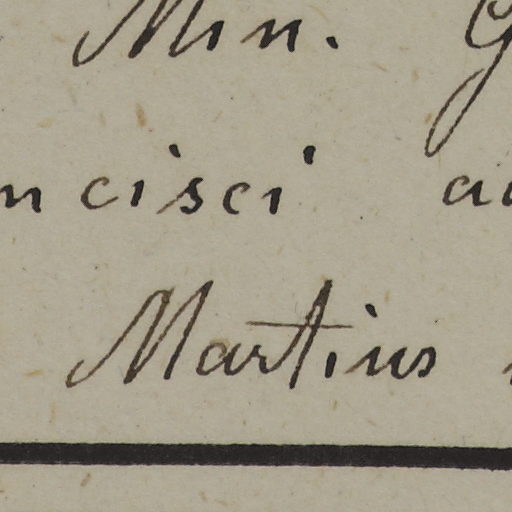 Min. G
ncisci a
Martius